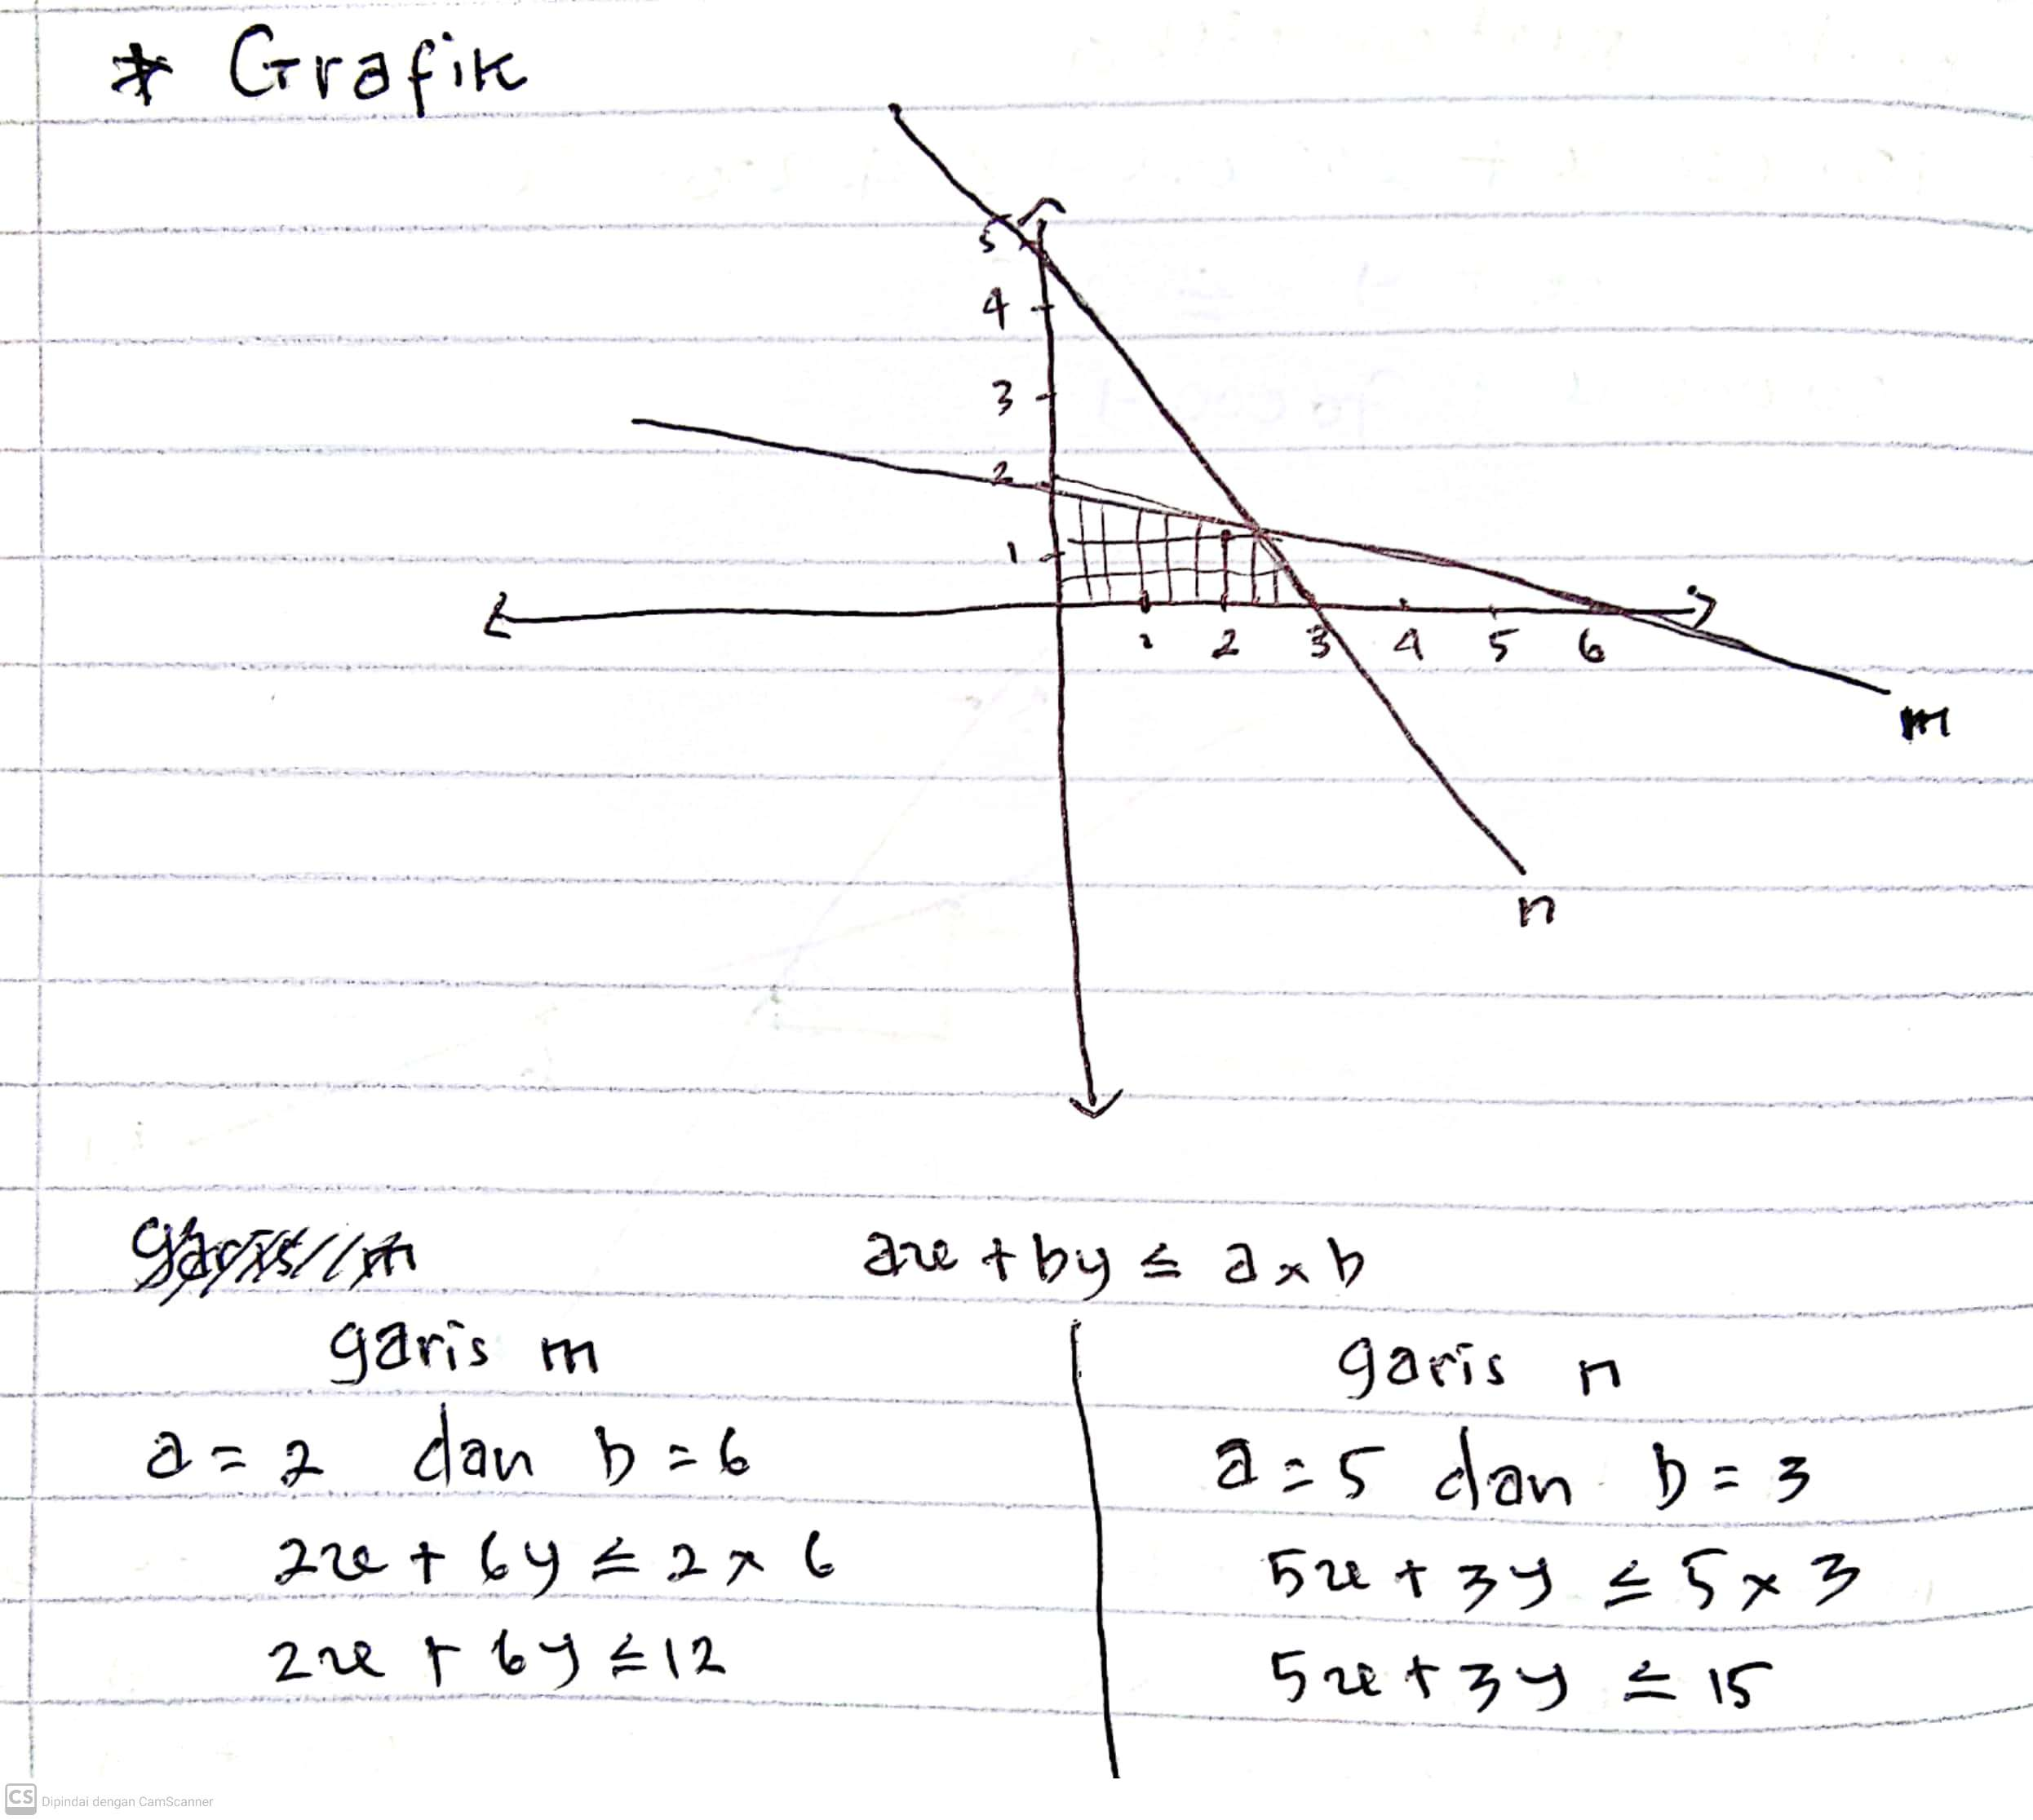 * Grafik
5
4
3
2
1
1 2 3 4 5 6
m
n
garis m
ax + by ≤ a x b
garis m
a = 2 dan b = 6
2x + 6y ≤ 2 x 6
2x + 6y ≤ 12
garis n
a = 5 dan b = 3
5x + 3y ≤ 5 x 3
5x + 3y ≤ 15
CS Dipindai dengan CamScanner